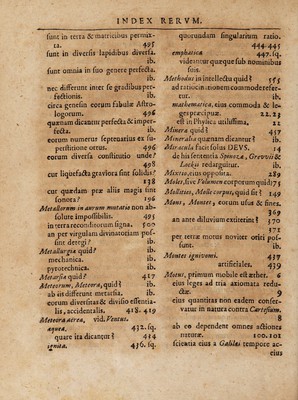 INDEX RERVM.
sunt in terra & matricibus permix-
ta. 495
sunt in diversis lapidibus diversa.
ib.
sunt omnia in suo genere perfecta.
ib.
nec differunt inter se gradibus per-
fectionis. ib.
circa genesin eorum fabulæ Astro-
logorum. 496
quænam dicantur perfecta & imper-
fecta. ib.
eorum numerus septenarius ex su-
perstitione ortus. 496
eorum diversa constitutio unde?
498
cur liquefacta graviora sint solidis?
238
cur quædam præ aliis magis sint
sonora? 196
Metallorum in aurum mutatio non ab-
solute impossibilis. 493
in terra reconditorum signa. 500
an per virgulam divinatoriam pos-
sint detegi? ib.
Metallurgia quid? ib.
mechanica. ib.
pyrotechnica. ib.
Metarsia quid? 417
Meteorum, Meteora, quid? ib.
ab iis differunt metarsia. ib.
eorum diversitas & divisio essentia-
lis, accidentalis. 418. 419
Meteora aerea, vid. Ventus.
aquea. 432. sq.
quare ita dicantur? 414
ignita. 436. sq.
quorundam singularium ratio.
444. 445
emphatica 447. sq.
videantur quæque sub nominibus
suis.
Methodus in intellectu quid? 555
ad ratiocinationem commode refer-
tur. ib.
mathematica, eius commoda & le-
ges præcipuæ. 22. 23
est in Physica utilissima. 22
Minera quid? 457
Mineralia quænam dicantur? ib.
Miracula facit solus DEVS. 14
de his sententia Spinozæ, Grevvii &
Lockij redarguitur. ib.
Mixtio, eius opposita. 289
Moles, sive Volumen corporum quid? 175
Mollities, Molle corpus, quid sit? 149
Mons, Montes, eorum usus & fines.
369
an ante diluvium extiterint? 370
371
per terræ motus noviter oriri pos-
sunt. ib.
Montes ignivomi. 437
artificiales. 439
Motus, primum mobile est æther. 6
eius leges ad tria axiomata redu-
ctæ. 9
eius quantitas non eadem conser-
vatur in natura contra Cartesium.
8
ab eo dependent omnes actiones
naturæ. 100. 101
scientia eius a Galilei tempore ac-
eius